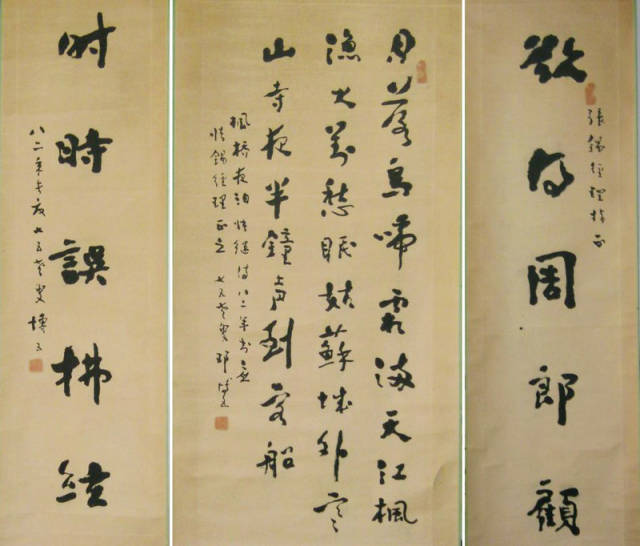 欲得周郎顧
張錫經理指正
月落烏啼霜滿天江楓
漁火對愁眠姑蘇城外寒
山寺夜半鐘声到客船
楓橋夜泊張繼詩八二年書應
張錫經理正之 七五老叟邓
时時誤拂絃
八二年 七五老叟